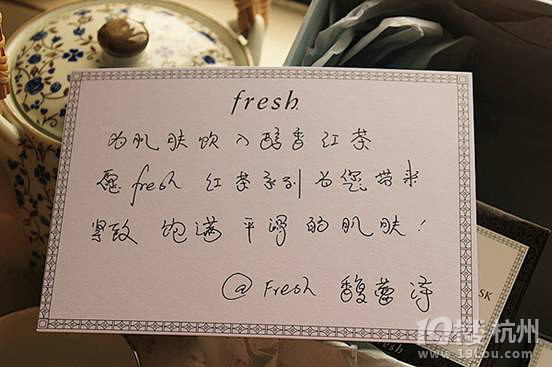 fresh
为肌肤饮入醇香红茶
愿fresh 红茶系列为您带来
紧致 饱满 平滑的肌肤!
@Fresh 馥蕾诗
SK
fresh
19楼 杭州
www.19lou.com